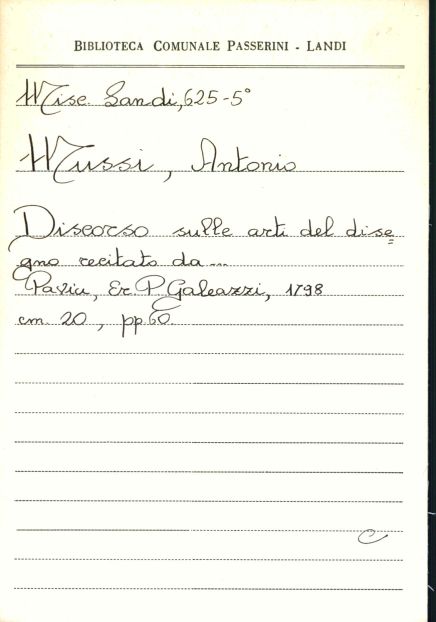 BIBLIOTECA COMUNALE PASSERINI - LANDI
Misc. Landi, 625-5°
Mussi, Antonio
Discorso sulle arti del dise=
gno recitato da...
Pavia, Er. P. Galeazzi, 1798
cm. 20, pp. 60.
C